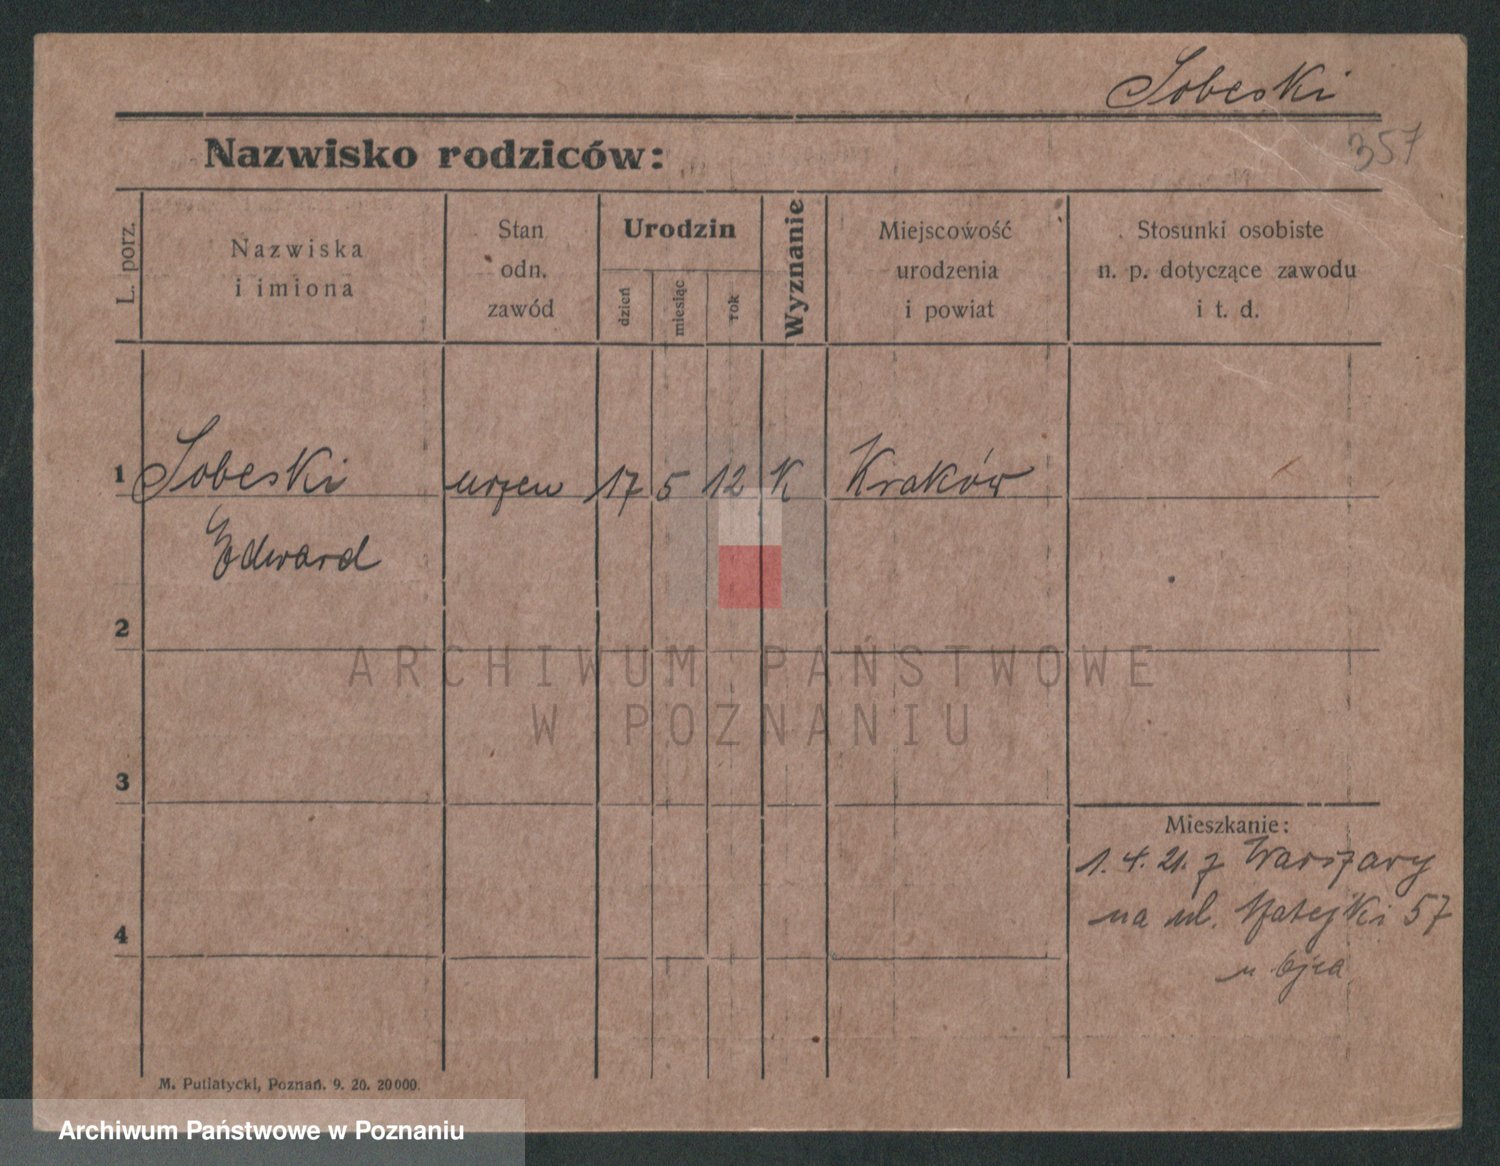 Sobeski
357
Nazwisko rodziców:
L. porz.
Nazwiska
i imiona
Stan
odn.
zawód
Urodzin
dzień
miesiąc
rok
Wyznanie
Miejscowość
urodzenia
i powiat
Stosunki osobiste
n. p. dotyczące zawodu
i t. d.
1 Sobeski uczeń 17 5 12 K Kraków
Edward
2
ARCHIWUM PAŃSTWOWE
W POZNANIU
3
Mieszkanie:
1. 4. 21. z Warszawy
na ul. Matejki 57
4
u ojca
M. Putiatycki, Poznań. 9. 20. 20000.
Archiwum Państwowe w Poznaniu